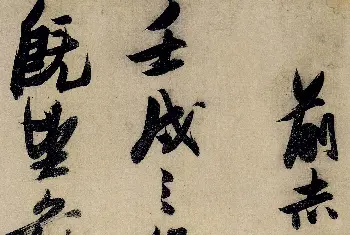 前赤
壬戌之
既望